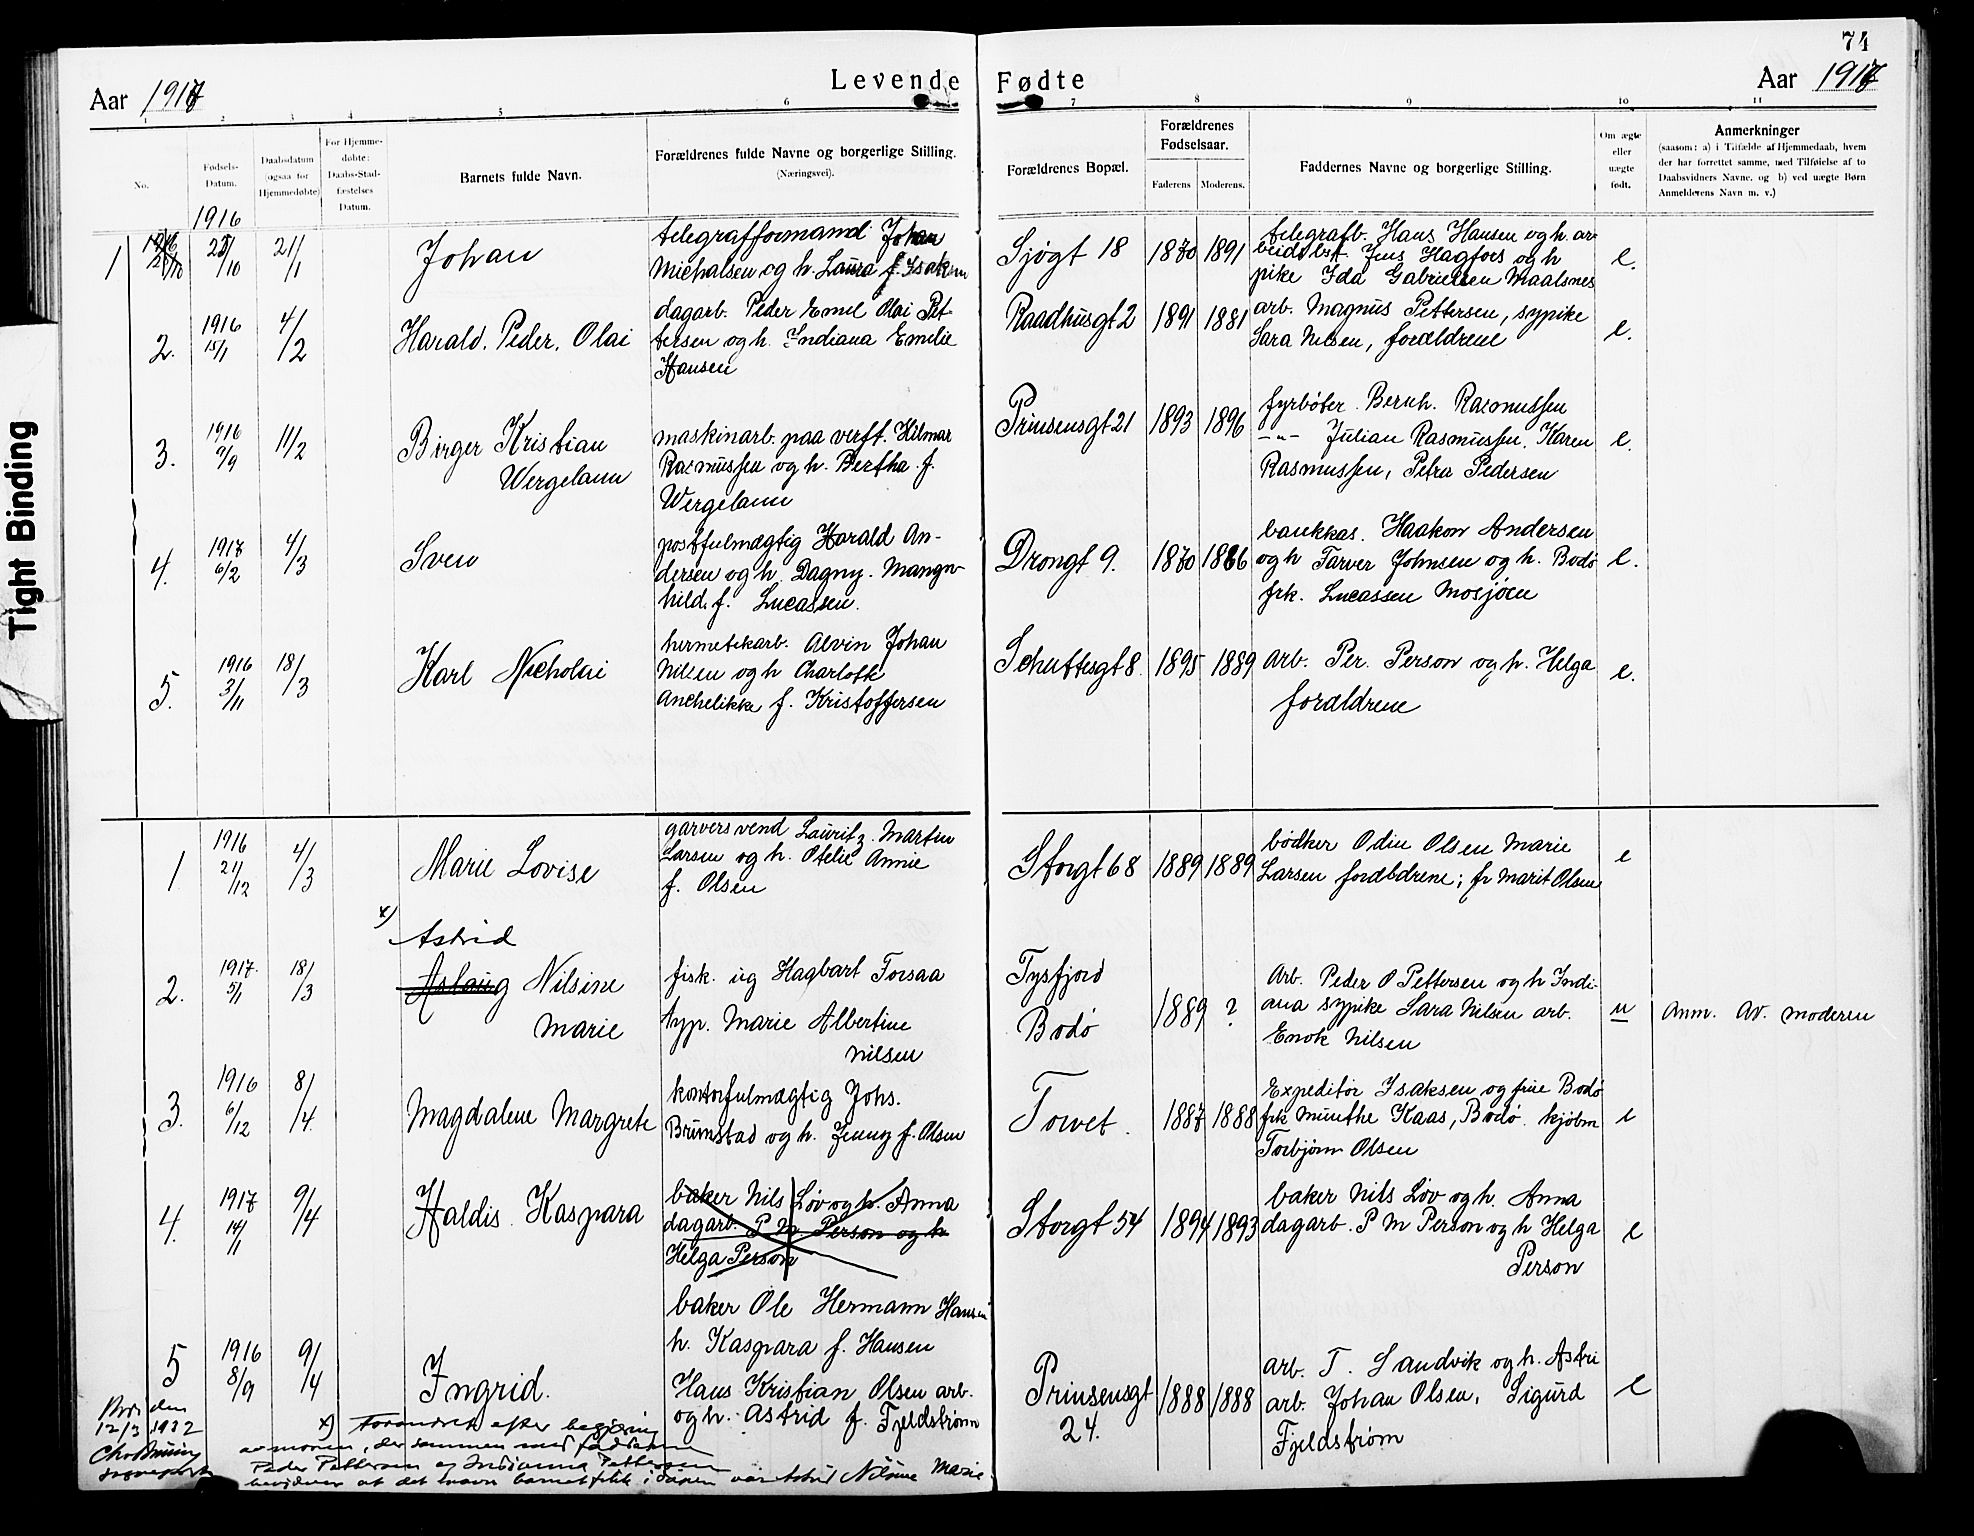 74
Levende Fødte
Aar 1917
Aar 1917
1 2 3 4 5 6 7 8 9 10 11
No.
Fødsels-
Datum.
Daabsdatum
(ogsaa for
Hjemmedøbte)
For Hjemme-
døbte:
Daabs-Stad-
fæstelses
Datum.
Barnets fulde Navn.
Forældrenes fulde Navne og borgerlige Stilling.
(Næringsvei).
Forældrenes Bopæl.
Forældrenes
Fødselsaar.
Faderens. Moderens.
Faddernes Navne og borgerlige Stilling.
Om ægte
eller
uægte
født.
Anmerkninger
(saasom: a) i Tilfælde af Hjemmedaab, hvem
der har forrettet samme, med Tilføielse af to
Daabsvidners Navne, og b) ved uægte Børn
Anmelderens Navn m. v.)
1
1916
25/10
21/1
Johan
telegrafformand Johan
Michalsen og h. Laura f. Isaksen
Sjøgt 18
1870
1891
telegrafb. Hans Hansen og h. ar-
Jens Hagfors og h
pike Ida Gabrielsen Maalsnes
e.
2.
1916
15/1
4/2
Harald. Peder. Olai
dagarb. Peder Emil Olai Pet-
tersen og h. Indiana Emilie
Hansen
Raadhusgt 2
1891
1881
arb. Magnus Pettersen, sypike
Sara Nilsen, forældrene
e.
3.
1916
9/9
11/2
Birger Kristian
Wergelann
maskinarb. paa verft. Hilmar
Rasmussen og h. Bertha f.
Wergelann
Prinsensgt 21
1893
1896
fyrbøter. Bernh. Rasmussen
-"- Julian Rasmussen. Karen
Rasmussen, Petra Pedersen
e.
4.
1917
6/2
4/3
Sven
postfulmægtig Harald An-
dersen og h. Dagny. Mangn-
hild. f. Lucassen.
Drongt 9.
1870
1866
bankkas. Haakon Andersen
og h Tarver Johnsen og h. Bodø
frk. Lucassen Mosjøen
e.
5.
1916
3/11
18/3
Karl Nicholai
hermetikarb. Alvin Johan
Nilsen og h Charlotte
Anchelikke f. Kristoffersen
Schuttesgt 8.
1895
1889
Arb. Per. Person og h. Helga
forældrene
e.
1
1916
21/12
4/3
Marie Lovise
garversvend Lauritz. Martin
Larsen og h. Otelie Annie
f. Olsen
Storgt 68
1889
1889
bødker Odin Olsen Marie
Larsen forældrene; fr Marit Olsen
e
x)
Astrid
2.
1917.
5/1
18/3
Aslaug Nilsine
Marie
fisk. ug Hagbart Forsaa
typ. Marie Albertine
Nilsen
Tysfjord
Bodø
1889
?
Arb. Peder O Pettersen og h Indi-
ana sypike Sara Nilsen arb.
Enok Nilsen
u
Anm. Av. moderen
3.
1916
6/12
8/4.
Magdalene Margrete
kontorfulmægtig Johs.
Brunstad og h. Jenny f. Olsen
Torvet.
1887
1888
Expeditør Isaksen og frue Bodø
frk Munthe Kaas, Bodø. kjøbm
Torbjørn Olsen
e
4.
1917
14/1
9/4
Haldis. Kaspara
baker Nils Løv og h. Anna
dagarb. P M Person og h
Helga Person
baker Ole Hermann Hansen
h. Kaspara f. Hansen
Storgt 54
1894
1893
baker Nils Løv og h. Anna
dagarb. P M Person og h Helga
Person
e
5
1916
8/9
9/4
Ingrid.
Hans Kristian Olsen arb.
og h. Astrid f. Fjeldstrøm
Prinsensgt
24.
1888
1888
arb. T. Sandvik og h. Astri
arb. Johan Olsen, Sigurd
Fjeldstrøm
e
den
12/3 1932
x) Forandret efter begjæring
av moren, der sammen med fadderne
Peder Pettersen og Indianna Pettersen
bevidner at det navn barnet fikk i dåpen var Astrid Nilsine Marie
Tight Binding